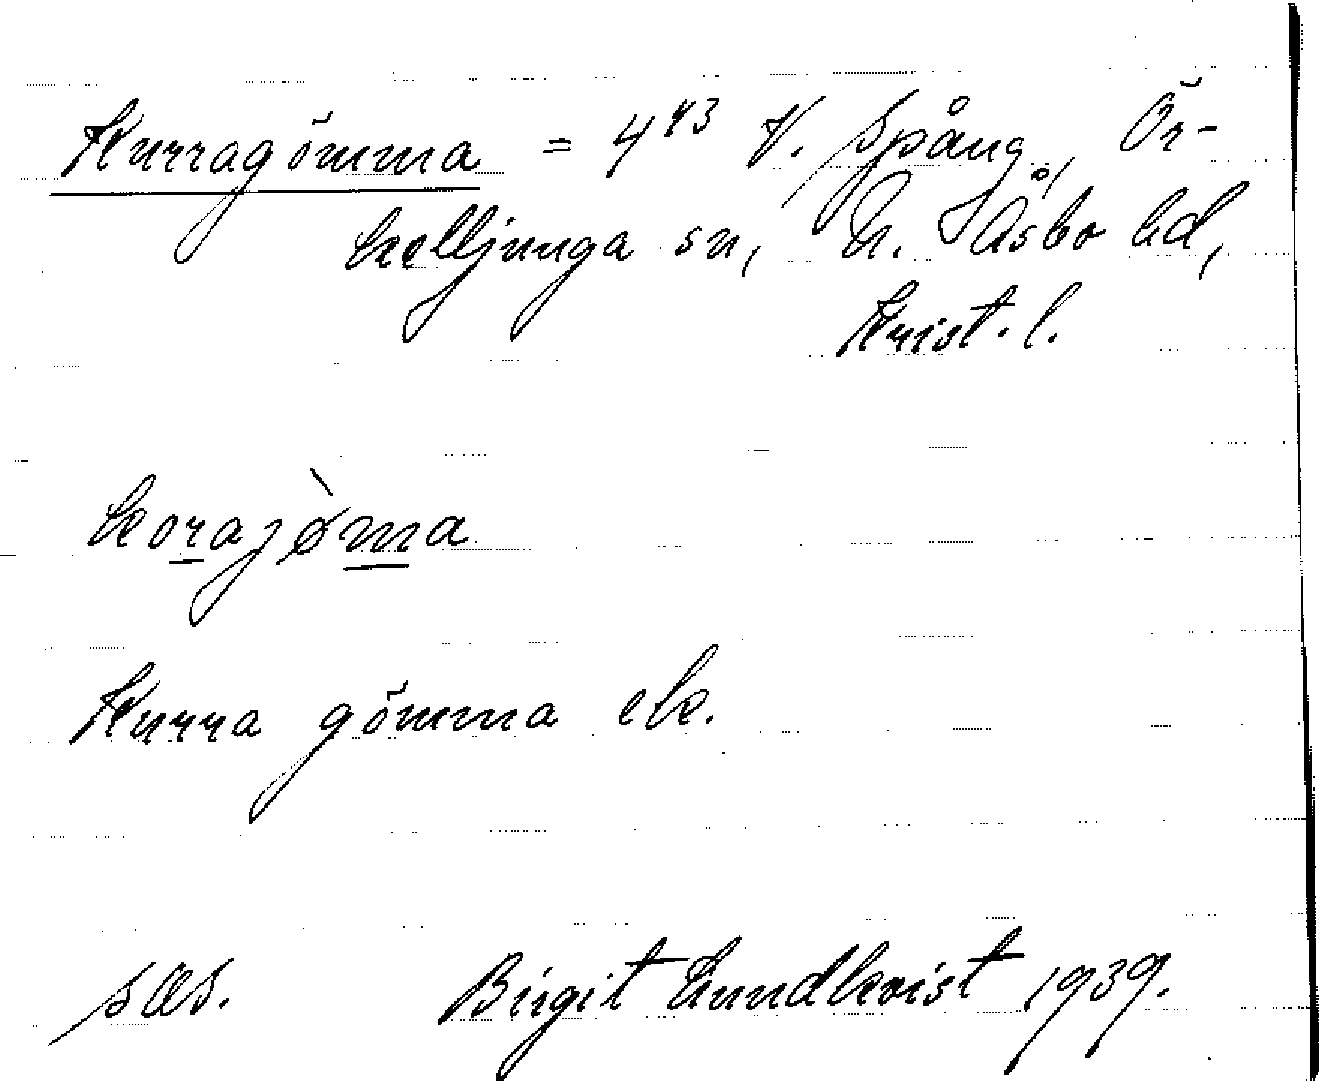 Kurragömma = 4⁴³ V. Spång, Ör-
kelljunga sn, N. Åsbo hd,
Krist. l.
korajø̀ma
Kurra gömma ek.
sæs. Birgit Lundkvist 1939.